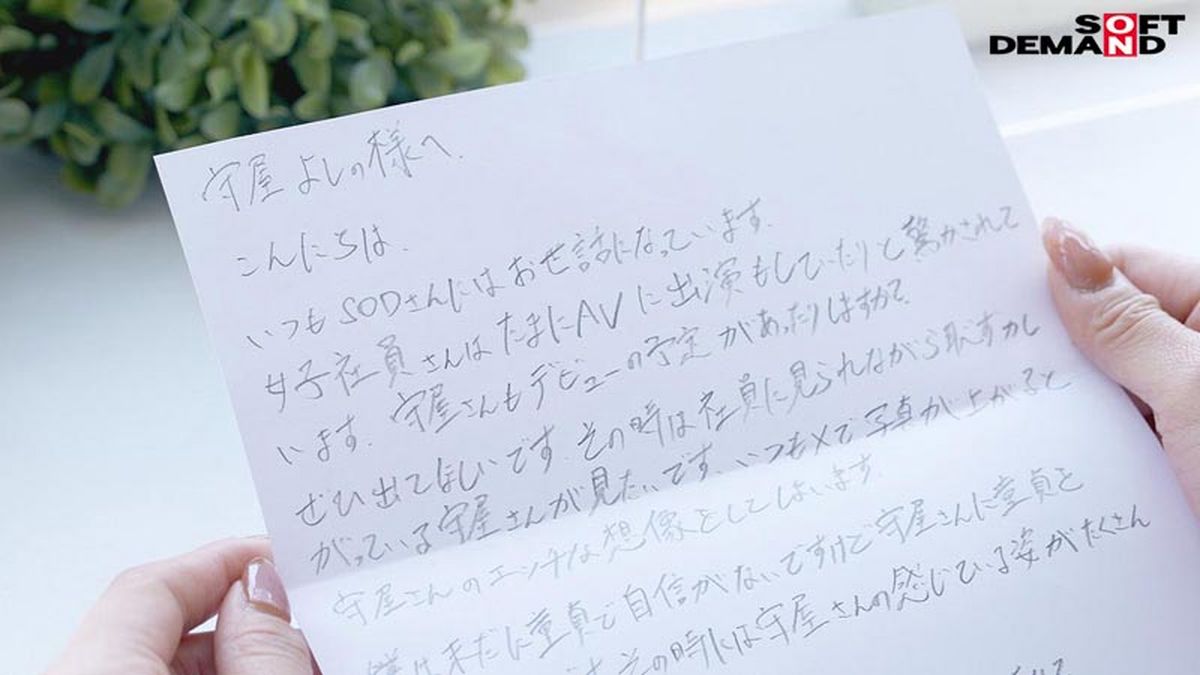 SOFT
ON
DEMAND
守屋よしの様へ.
こんにちは.
いつもSODさんにはお世話になっています.
女子社員さんはたまにAVに出演もしていたりと驚かされて
います. 守屋さんもデビューの予定があったりしますか?
ぜひ出てほしいです. その時は社員に見られながら恥ずかし
がっている守屋さんが見たいです. いつもXで写真が上がると
守屋さんのエッチな想像をしてしまいます.
僕は未だに童貞で自信がないですけど守屋さんに童貞を
その時には守屋さんの感じている姿がたくさん